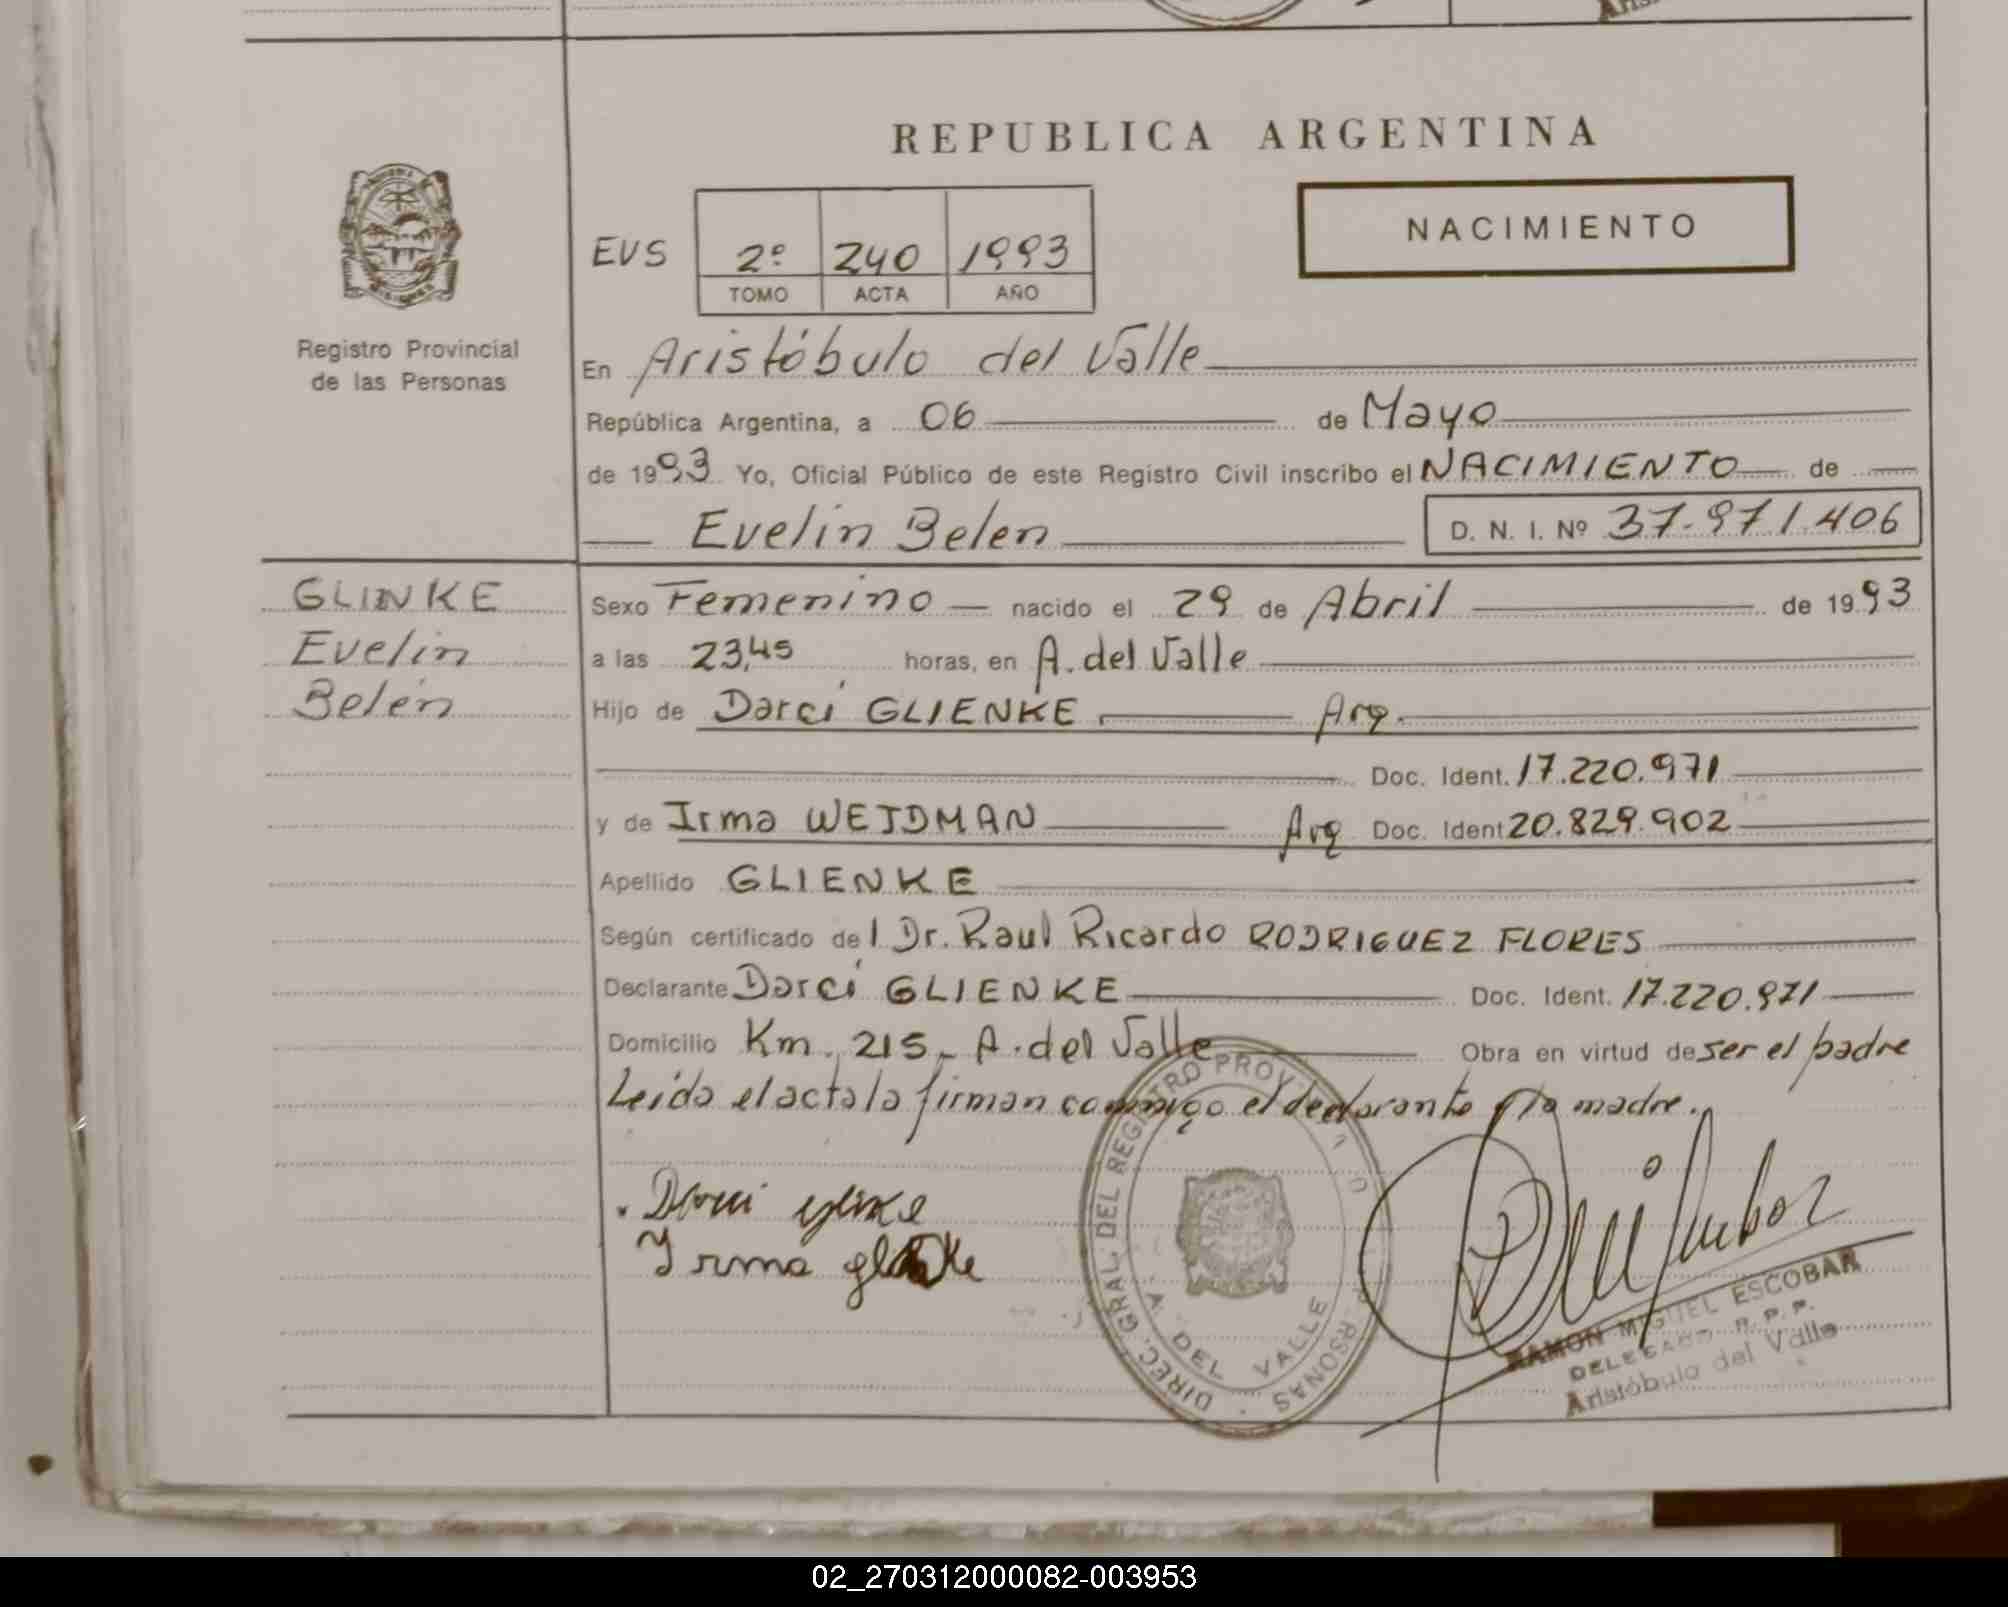 REPUBLICA ARGENTINA
NACIMIENTO
EVS 2º 240 1993
TOMO ACTA AÑO
Registro Provincial
de las Personas
En Aristóbulo del Valle
República Argentina, a 06 de Mayo
de 1993 Yo, Oficial Público de este Registro Civil inscribo el NACIMIENTO de
Evelin Belen D. N. I. Nº 37.971.406
GLINKE
Evelin
Belén
Sexo Femenino nacido el 29 de Abril de 1993
a las 23,45 horas, en A. del Valle
Hijo de Darci GLIENKE Arg.
Doc. Ident. 17.220.971
y de Irma WEIDMAN Arg Doc. Ident 20.829.902
Apellido GLIENKE
Según certificado del Dr. Raul Ricardo RODRIGUEZ FLORES
Declarante Darci GLIENKE Doc. Ident. 17.220.971
Domicilio Km. 215- A. del Valle Obra en virtud de ser el padre
Leída el acta la firman conmigo el declarante y la madre.
Darci
Irma
DIREC. GRAL. DEL REGISTRO PROV
A. DEL VALLE
RAMON MIGUEL ESCOBAR
DELEGADO R. P. P.
Aristóbulo del Valle
02_270312000082-003953